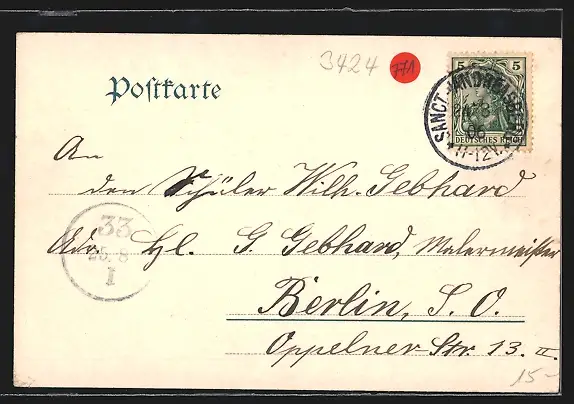 3424
771
5 5
Poſtkarte
DEUTSCHES REICH
SANCT ANDREASBERG
24 8
06
11-12V.
An
den Schüler Wilh. Gebhard
Adr. Hl. G. Gebhard, Malermeister
33
25. 8
I
Berlin, S. O.
Oppelner Str. 13. II.
15-